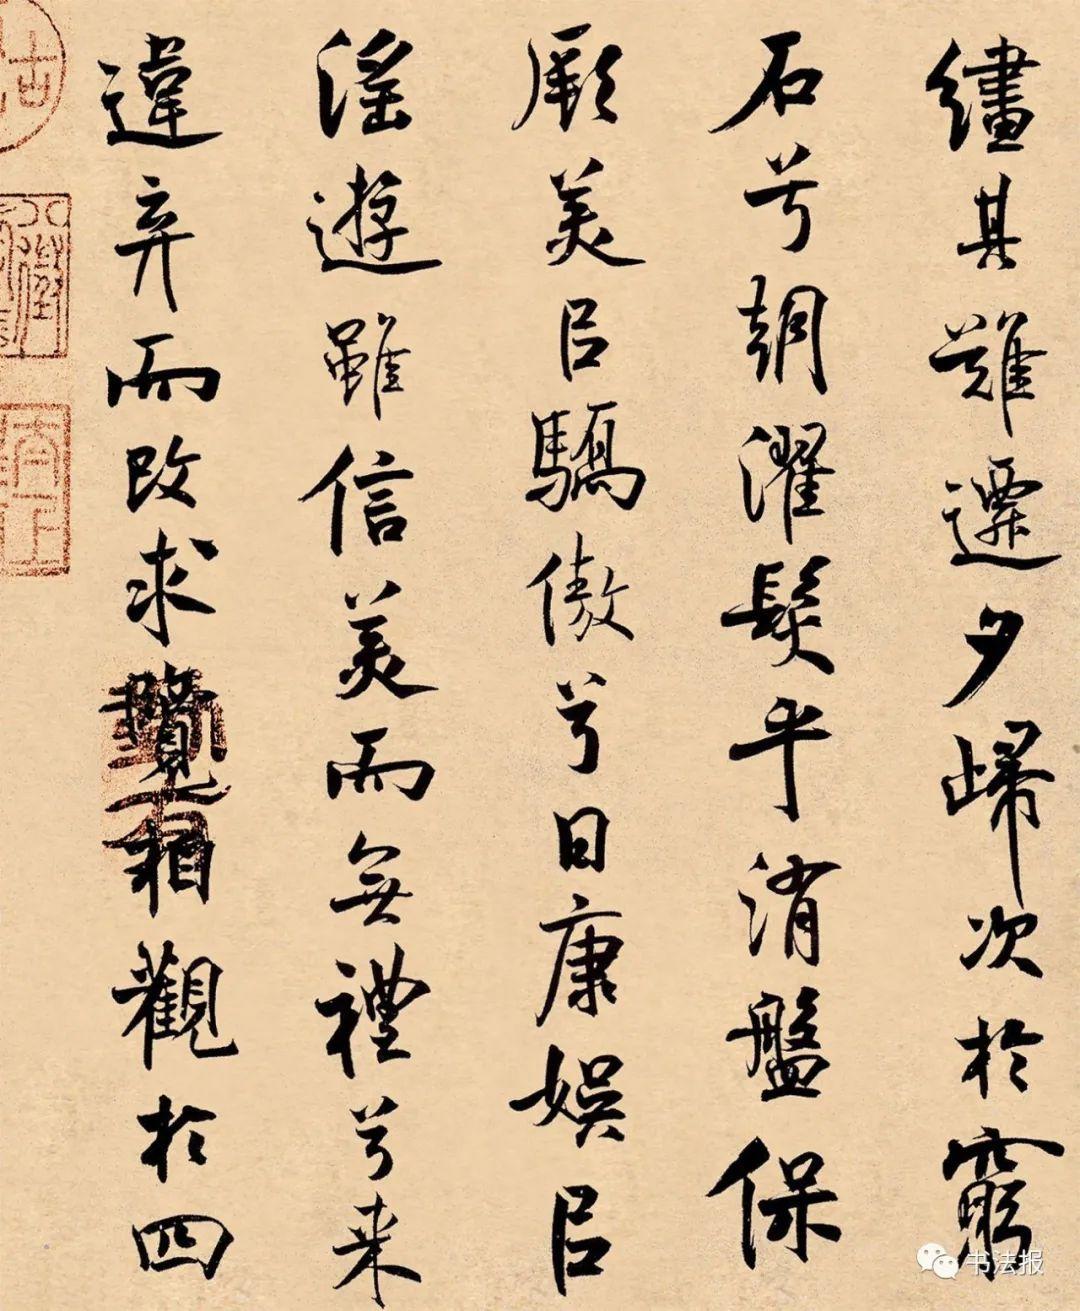 繣其難遷夕歸次於窮
石兮朝濯髮乎洧盤保
厥美以驕傲兮日康娛以
淫遊雖信美而無禮兮来
違弃而改求覽相觀於四
书法报